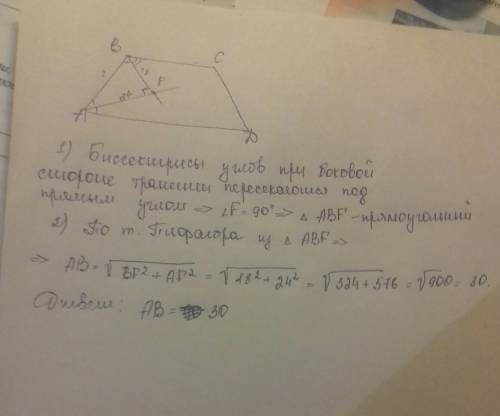 B
C
?
18
F
24
A
D
1) Биссектрисы углов при боковой
стороне трапеции пересекаются под
прямым углом => ∠F = 90° => △ ABF - прямоугольный
2) По т. Пифагора из △ ABF =>
=> AB = √BF² + AF² = √18² + 24² = √324 + 576 = √900 = 30.
Ответ: AB = 30